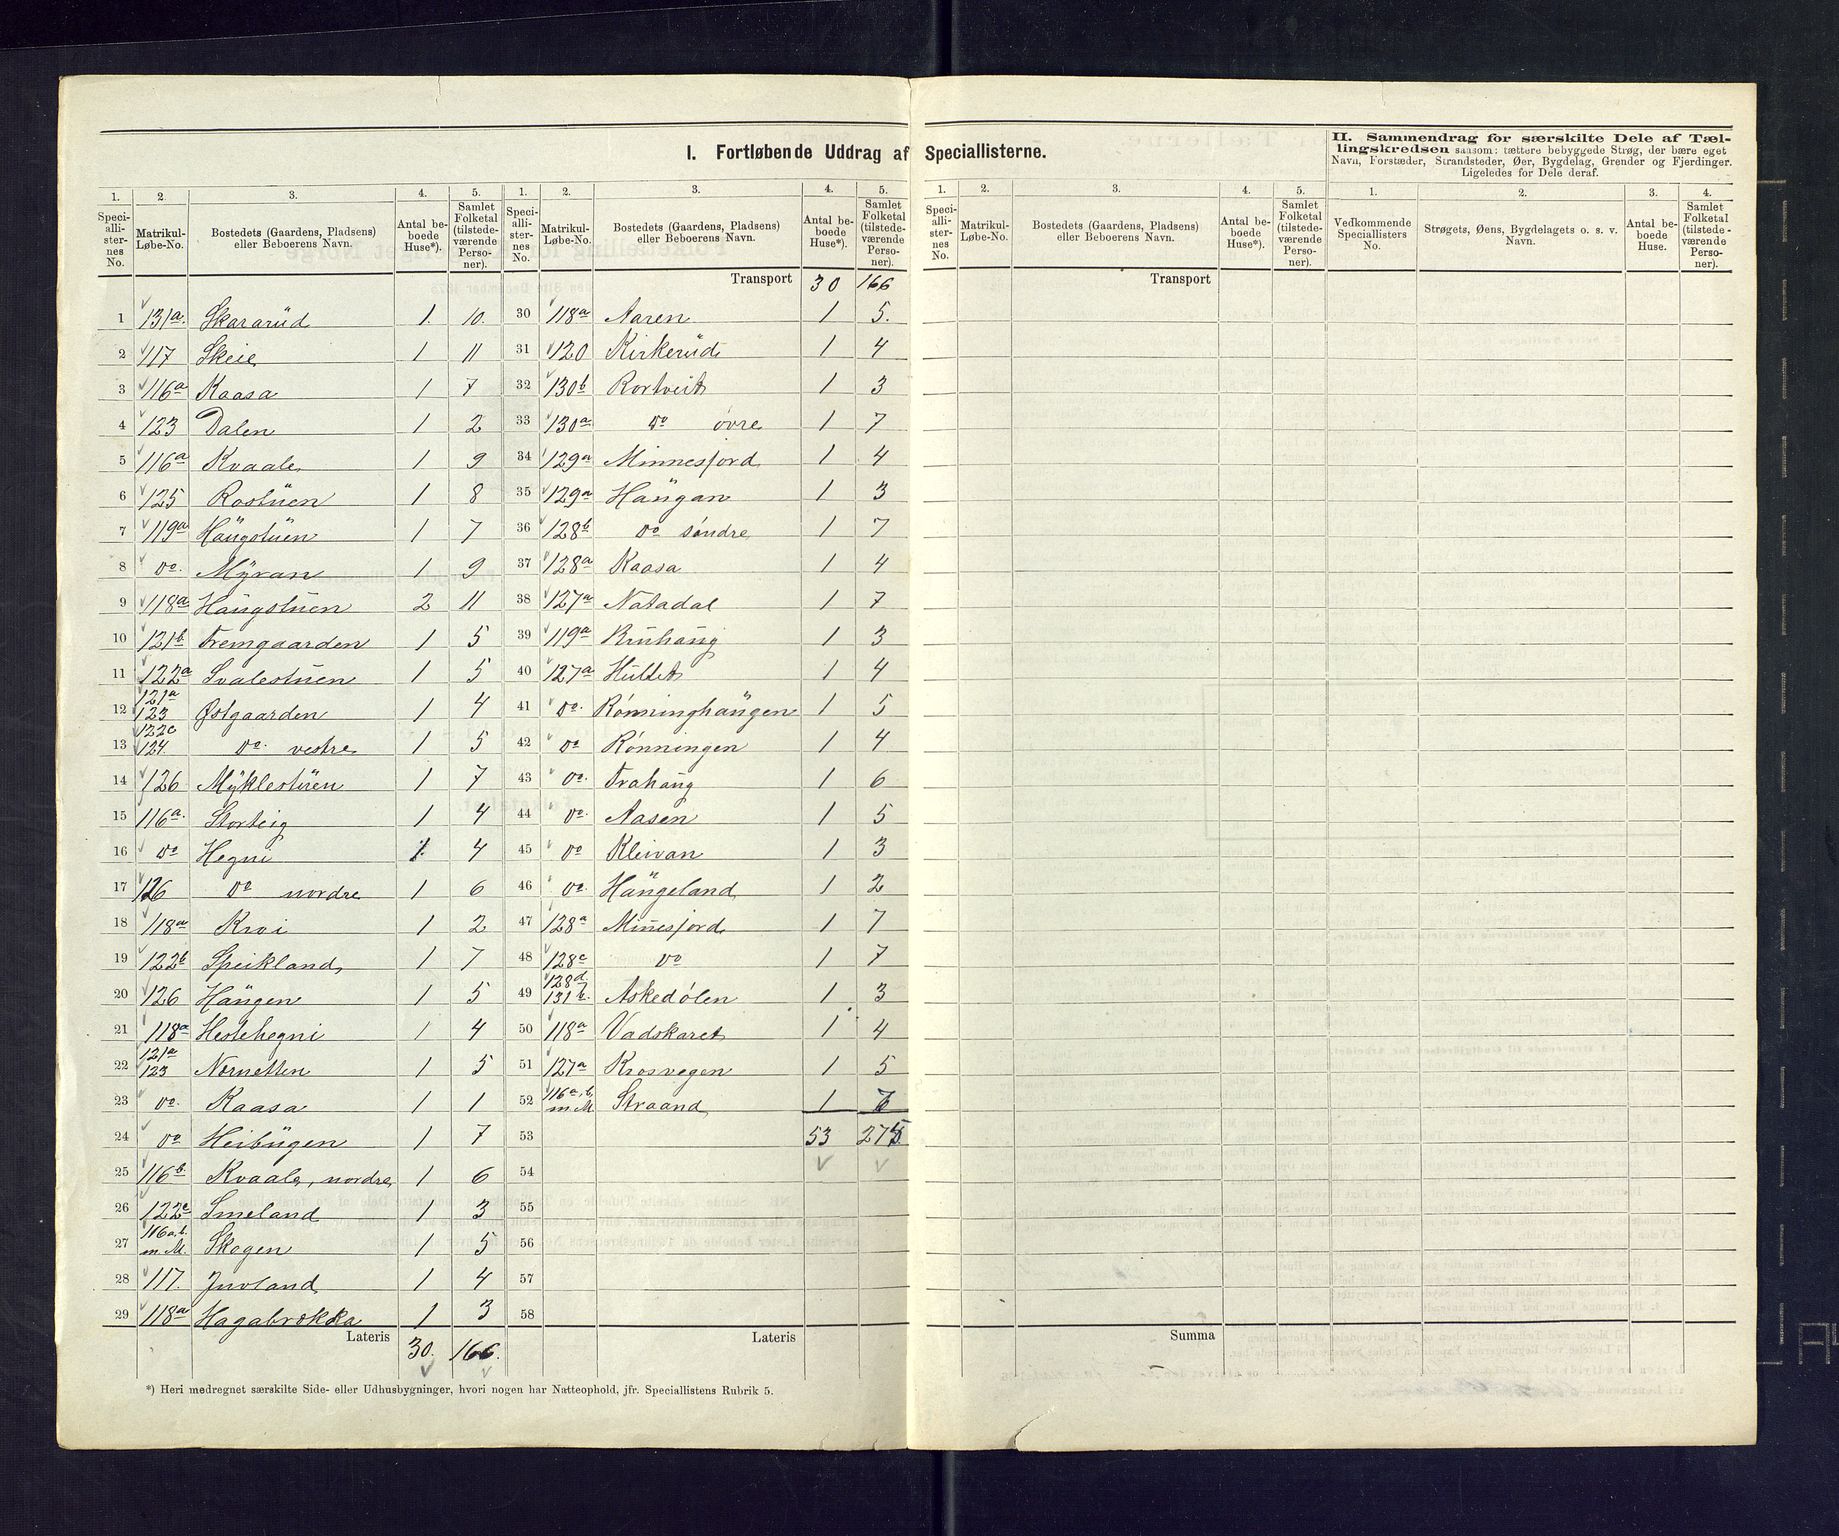 I. Fortløbende Uddrag af Speciallisterne.
II. Sammendrag for særskilte Dele af Tællingskredsen saasom: tættere bebyggede Strøg, der bære eget
Navn, Forstæder, Strandsteder, Øer, Bygdelag, Grender og Fjerdinger.
Ligeledes for Dele deraf.
1. 2. 3. 4. 5. 1. 2. 3. 4. 5. 1. 2. 3. 4. 5. 1. 2. 3. 4.
Speciallisternes No. Matrikul-Løbe-No. Bostedets (Gaardens, Pladsens) eller Beboerens Navn. Antal beboede Huse*). Samlet Folketal (tilstedeværende Personer).
Speciallisternes No. Matrikul-Løbe-No. Bostedets (Gaardens, Pladsens) eller Beboerens Navn. Antal beboede Huse*). Samlet Folketal (tilstedeværende Personer).
Speciallisternes No. Matrikul-Løbe-No. Bostedets (Gaardens, Pladsens) eller Beboerens Navn. Antal beboede Huse*). Samlet Folketal (tilstedeværende Personer).
Vedkommende Speciallisters No. Strøgets, Øens, Bygdelagets o. s. v. Navn. Antal beboede Huse. Samlet Folketal (tilstedeværende Personer).
1 131a. Skararud 1. 10.
2 117 Skeie 1 11
3 116a Kaasa 1 7
4 123 Dalen 1 2
5 116a Kvaale 1 9
6 125 Rostuen 1 8
7 119a Haugstuen 1 7
8 do. Myran 1 9
9 118a Haugstuen 2 11
10 121b Fremgaarden 1 5
11 122a Svalestuen 1 5
12 121a 123 Østgaarden 1 4
13 122c 124. do. vestre 1 5
14 126 Myklestuen 1 7
15 116a. Storteig 1 4
16 do Hegni 1. 4
17 126 do nordre 1 6
18 118a Kroi 1 2
19 122b Speikland 1 7
20 126 Haugen 1 5
21 118a Hestehegni 1 4
22 121a 123 Nornetten 1 5
23 do. Kaasa 1 1
24 do Heibugen 1 7
25 116b. Kvaale, nordre 1 6
26 122c Smeland 1 3
27 116a,b. m.M. Skogen 1 5
28 117. Juvland 1 4
29 118a Hagabrokka 1 3
Lateris 30. 166.
Transport 30 166
30 118a Aaren 1 5.
31 120 Kirkerud 1 4
32 130b Rortveit 1 3
33 130a do øvre 1 7
34 129a Minnesjord 1 4
35 129a Haugan 1 3
36 128b do søndre 1 7
37 128a Kaasa 1 4
38 127a Natadal 1 7
39 119a Bruhaug 1 3
40 127a Hultet 1 4
41 do. Rønninghaugen 1 5
42 do Rønningen 1 4
43 do. Trahaug 1 6
44 do. Aasen 1 5
45 do Kleivan 1 3
46 do. Haugeland 1 2
47 128a Minesjord 1 7
48 128c do 1 7
49 128d 131b. Askedølen 1 3
50 118a Vadskaret 1 4
51 127a Krosvegen 1 5
52 116a,b, m.M Straand 1 7
53 53 275.
54
55
56
57
58
Lateris
Transport
Summa
*) Heri medregnet særskilte Side- eller Udhusbygninger, hvori nogen har Natteophold, jfr. Speciallistens Rubrik 5.